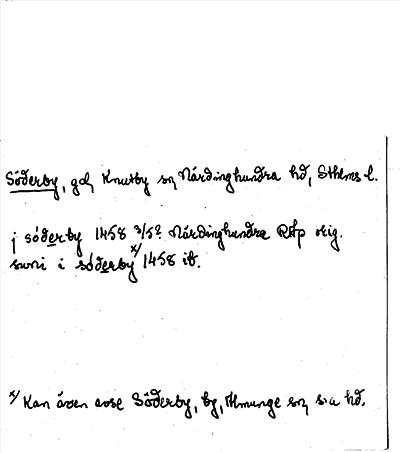 Söderby, gd, Knutby sn Närdinghundra hd, Sthlms l.
j söderby 1458 3/5? Närdinghundra RAp orig.
swni i söderby x/ 1458 ib.
x/ Kan även avse Söderby, by, Almunge sn s:a hd.